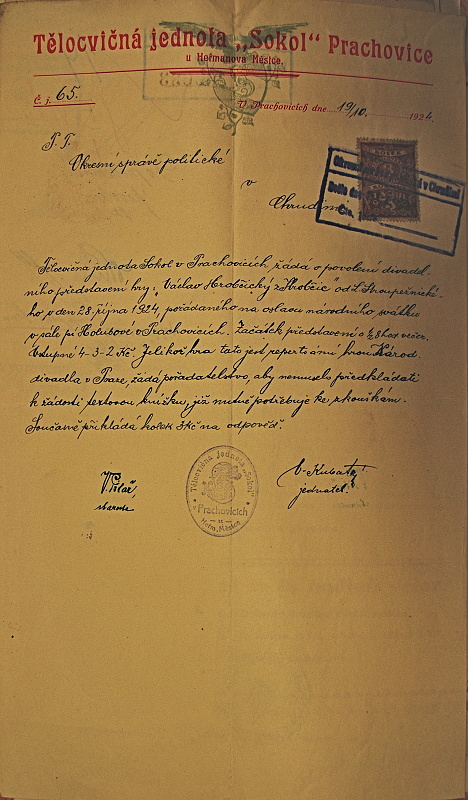 Tělocvičná jednota „Sokol“ Prachovice
u Heřmanova Městce.
Č. j. 65.
V Prachovicích dne 19/10. 1924.
P. T.
Okresní správě politické
v
Chrudimi
Tělocvičná jednota Sokol v Prachovicích, žádá o povolení divadel-
ního představení hry „Václav Hrobčický z Hrobčic od L. Stroupežnické-
ho v den 28. října 1924 pořádaného na oslavu národního svátku
v sále pí Holubové v Prachovicích. Začátek představení o ½8 hod večer.
Vstupné 4-3-2 Kč. Jelikož hra tato jest repertoární hrou Národ.
divadla v Praze, žádá pořadatelstvo, aby nemuselo předkládati
k žádosti textovou knížku, již nutně potřebuje ke zkouškám.
Současně přikládá kolek 3Kč na odpověď.
starosta
jednatel.
Tělocvičná jednota „Sokol“
Prachovicích
u
Heřm. Městce